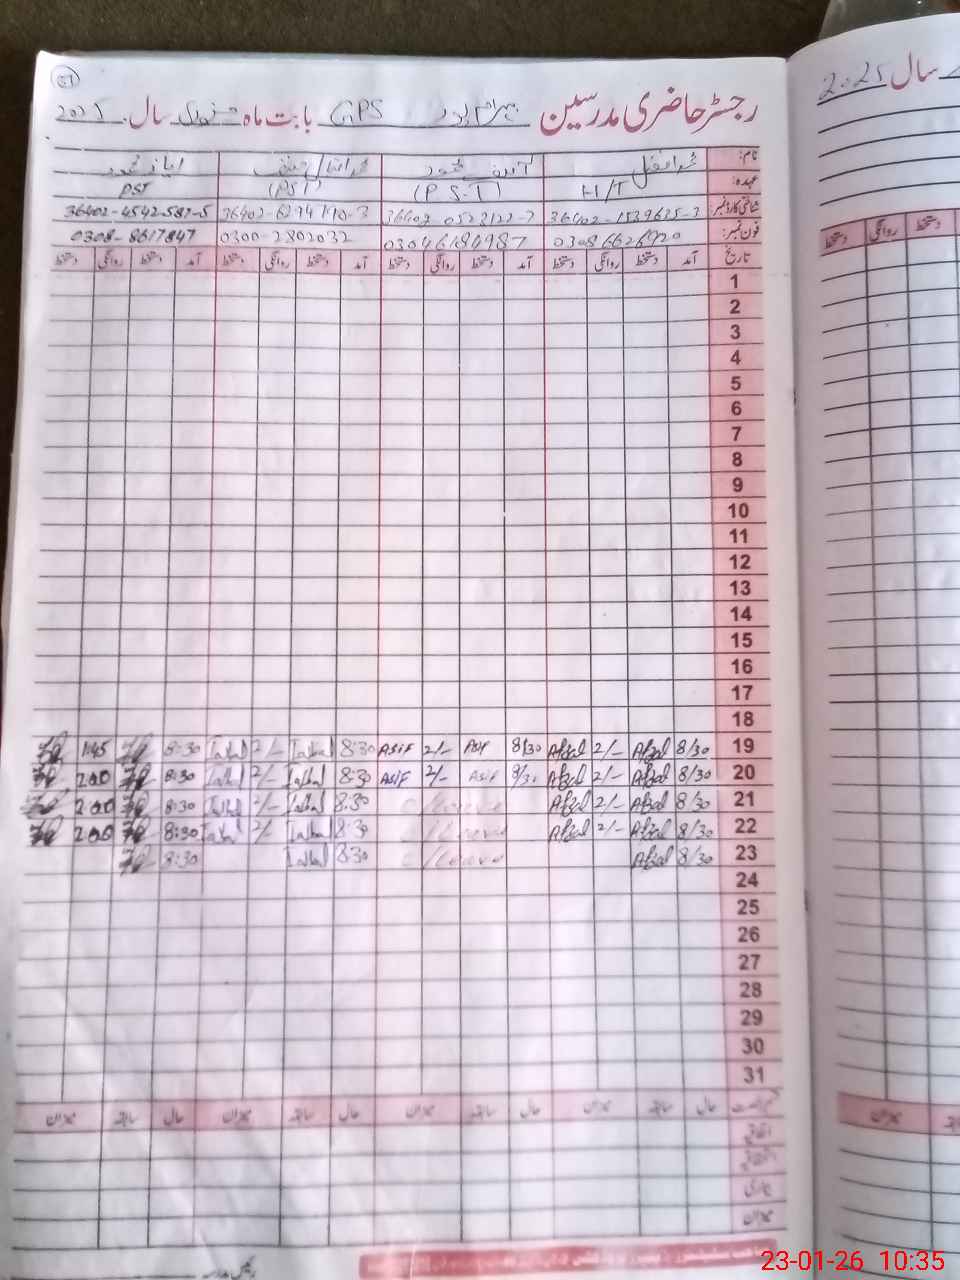 رجسٹر حاضری مدرسین بہرام پور GPS بابت ماہ جنوری سال 2025
سال 2025
نام: محمد افضل آصف محمود محمد اقبال ایاز محمود
عہدہ: H/T (P.S.T) (PST) PST
شناختی کارڈ نمبر: 36402-1539635-3 36402-6294190-3 36402-4542587-5
فون نمبر: 03086626920 03046184987 0300-2802032 0308-8617847
تاریخ آمد دستخط روانگی دستخط آمد دستخط روانگی دستخط آمد دستخط روانگی دستخط آمد دستخط روانگی دستخط
روانگی دستخط
1
2
3
4
5
6
7
8
9
10
11
12
13
14
15
16
17
18
19 8/30 Afzal 2/- Afzal 8/30 Asif 2/- Asif 8:30 Iqbal 2/- Iqbal 8:30 1:45
20 8/30 Afzal 2/- Afzal 8/30 Asif 2/- Asif 8:30 Iqbal 2/- Iqbal 8:30 2:00
21 8/30 Afzal 2/- Afzal c/Leave 8:30 Iqbal 2/- Iqbal 8:30 2:00
22 8/30 Afzal 2/- Afzal c/Leave 8:30 Iqbal 2/- Iqbal 8:30 2:00
23 8/30 Afzal c/Leave 8:30 Iqbal 8:30
24
25
26
27
28
29
30
31
حال سابقہ میزان حال سابقہ میزان حال سابقہ میزان حال سابقہ میزان
میزان
اتفاقی
بیماری
میزان
23-01-26 10:35